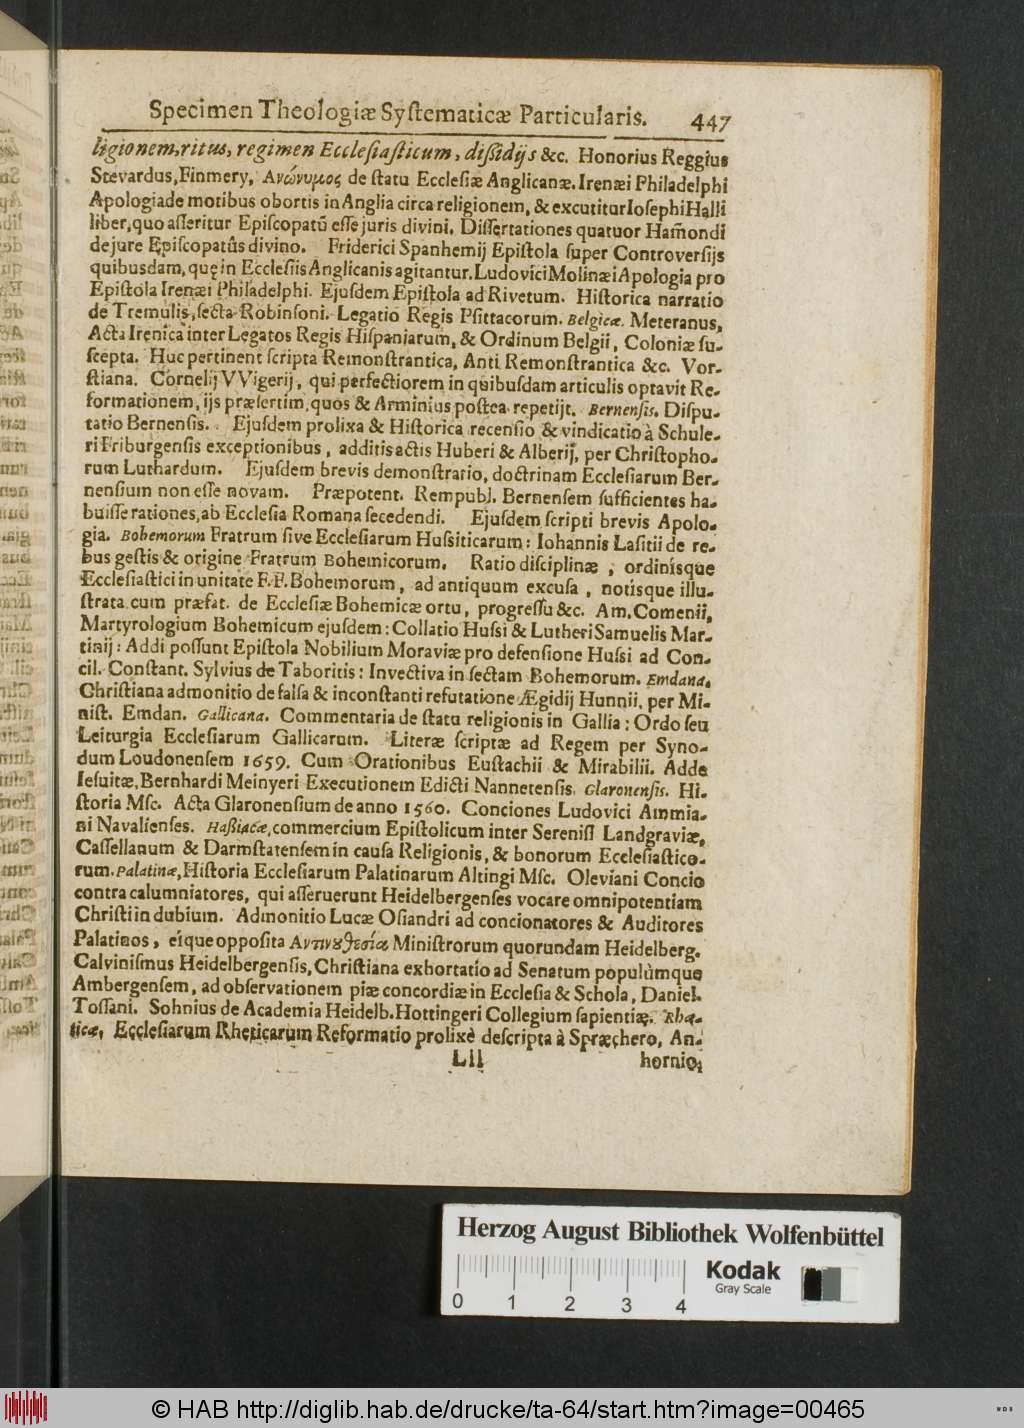 Specimen Theologiæ Systematicæ Particularis. 447
ligionem, ritus, regimen Ecclesiasticum, dißidijs &c. Honorius Reggius
Stevardus, Finmery, Ανώνυμος de statu Ecclesiæ Anglicanæ. Irenæi Philadelphi
Apologia de motibus obortis in Anglia circa religionem, & excutitur Iosephi Halli
liber, quo asseritur Episcopatū esse juris divini. Dissertationes quatuor Ham̄ondi
de jure Episcopatûs divino. Friderici Spanhemij Epistola super Controversijs
quibusdam, quę in Ecclesiis Anglicanis agitantur. Ludovici Molinæi Apologia pro
Epistola Irenæi Philadelphi. Ejusdem Epistola ad Rivetum. Historica narratio
de Tremulis, secta Robinsoni. Legatio Regis Psittacorum. Belgicæ. Meteranus,
Acta Irenica inter Legatos Regis Hispaniarum, & Ordinum Belgii, Coloniæ su-
scepta. Huc pertinent scripta Remonstrantica, Anti Remonstrantica &c. Vor-
stiana. Cornelij VVigerij, qui perfectiorem in quibusdam articulis optavit Re-
formationem, ijs præsertim, quos & Arminius postea repetijt. Bernensis. Dispu-
tatio Bernensis. Ejusdem prolixa & Historica recensio & vindicatio à Schule-
ri Friburgensis exceptionibus, additis actis Huberi & Alberij, per Christopho-
rum Luthardum. Ejusdem brevis demonstratio, doctrinam Ecclesiarum Ber-
nensium non esse novam. Præpotent. Rempubl. Bernensem sufficientes ha-
buisse rationes, ab Ecclesia Romana secedendi. Ejusdem scripti brevis Apolo-
gia. Bohemorum Fratrum sive Ecclesiarum Hussiticarum: Iohannis Lasitii de re-
bus gestis & origine Fratrum Bohemicorum. Ratio disciplinæ, ordinisque
Ecclesiastici in unitate F. F. Bohemorum, ad antiquum excusa, notisque illu-
strata cum præfat. de Ecclesiæ Bohemicæ ortu, progressu &c. Am. Comenii,
Martyrologium Bohemicum ejusdem: Collatio Hussi & Lutheri Samuelis Mar-
tinij: Addi possunt Epistola Nobilium Moraviæ pro defensione Hussi ad Con-
cil. Constant. Sylvius de Taboritis: Invectiva in sectam Bohemorum. Emdana,
Christiana admonitio de falsa & inconstanti refutatione Ægidij Hunnii, per Mi-
nist. Emdan. Gallicana. Commentaria de statu religionis in Gallia: Ordo seu
Leiturgia Ecclesiarum Gallicarum. Literæ scriptæ ad Regem per Syno-
dum Loudonensem 1659. Cum Orationibus Eustachii & Mirabilii. Adde
Iesuitæ, Bernhardi Meinyeri Executionem Edicti Nannetensis. Glaronensis. Hi-
storia Msc. Acta Glaronensium de anno 1560. Conciones Ludovici Ammia-
ni Navalienses. Haßiacæ, commercium Epistolicum inter Sereniss Landgraviæ,
Cassellanum & Darmstatensem in causa Religionis, & bonorum Ecclesiastico-
rum. Palatinæ, Historia Ecclesiarum Palatinarum Altingi Msc. Oleviani Concio
contra calumniatores, qui asseruerunt Heidelbergenses vocare omnipotentiam
Christi in dubium. Admonitio Lucæ Osiandri ad concionatores & Auditores
Palatinos, eique opposita Αντινȣθεσία Ministrorum quorundam Heidelberg.
Calvinismus Heidelbergensis, Christiana exhortatio ad Senatum populùmque
Ambergensem, ad observationem piæ concordiæ in Ecclesia & Schola, Daniel.
Tossani. Sohnius de Academia Heidelb. Hottingeri Collegium sapientiæ. Rhæ-
ticæ, Ecclesiarum Rheticarum Reformatio prolixè descripta à Spræchero, An-
Lll hornio,
Herzog August Bibliothek Wolfenbüttel
Kodak
Gray Scale
0 1 2 3 4
© HAB http://diglib.hab.de/drucke/ta-64/start.htm?image=00465